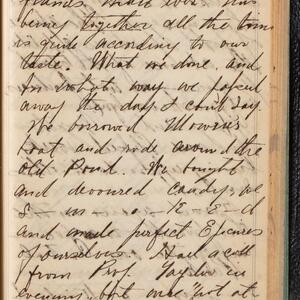 friends
being together all the time
is quite according to our
taste. What we done and
in what way we passed
away the day I can't say
We borrowed Mowris
boat and rode around the
old Pond. We bought
and devoured candy; we
S - m - o - K - E - d
and made perfect Epicures
of ourselves: Had a call
from Prof. Taylor in
evening, but was "not at